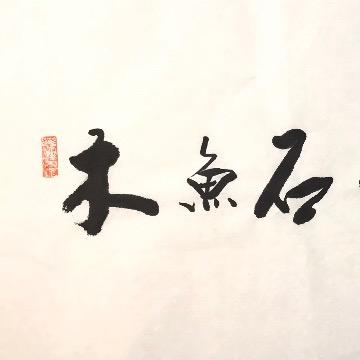 石魚木